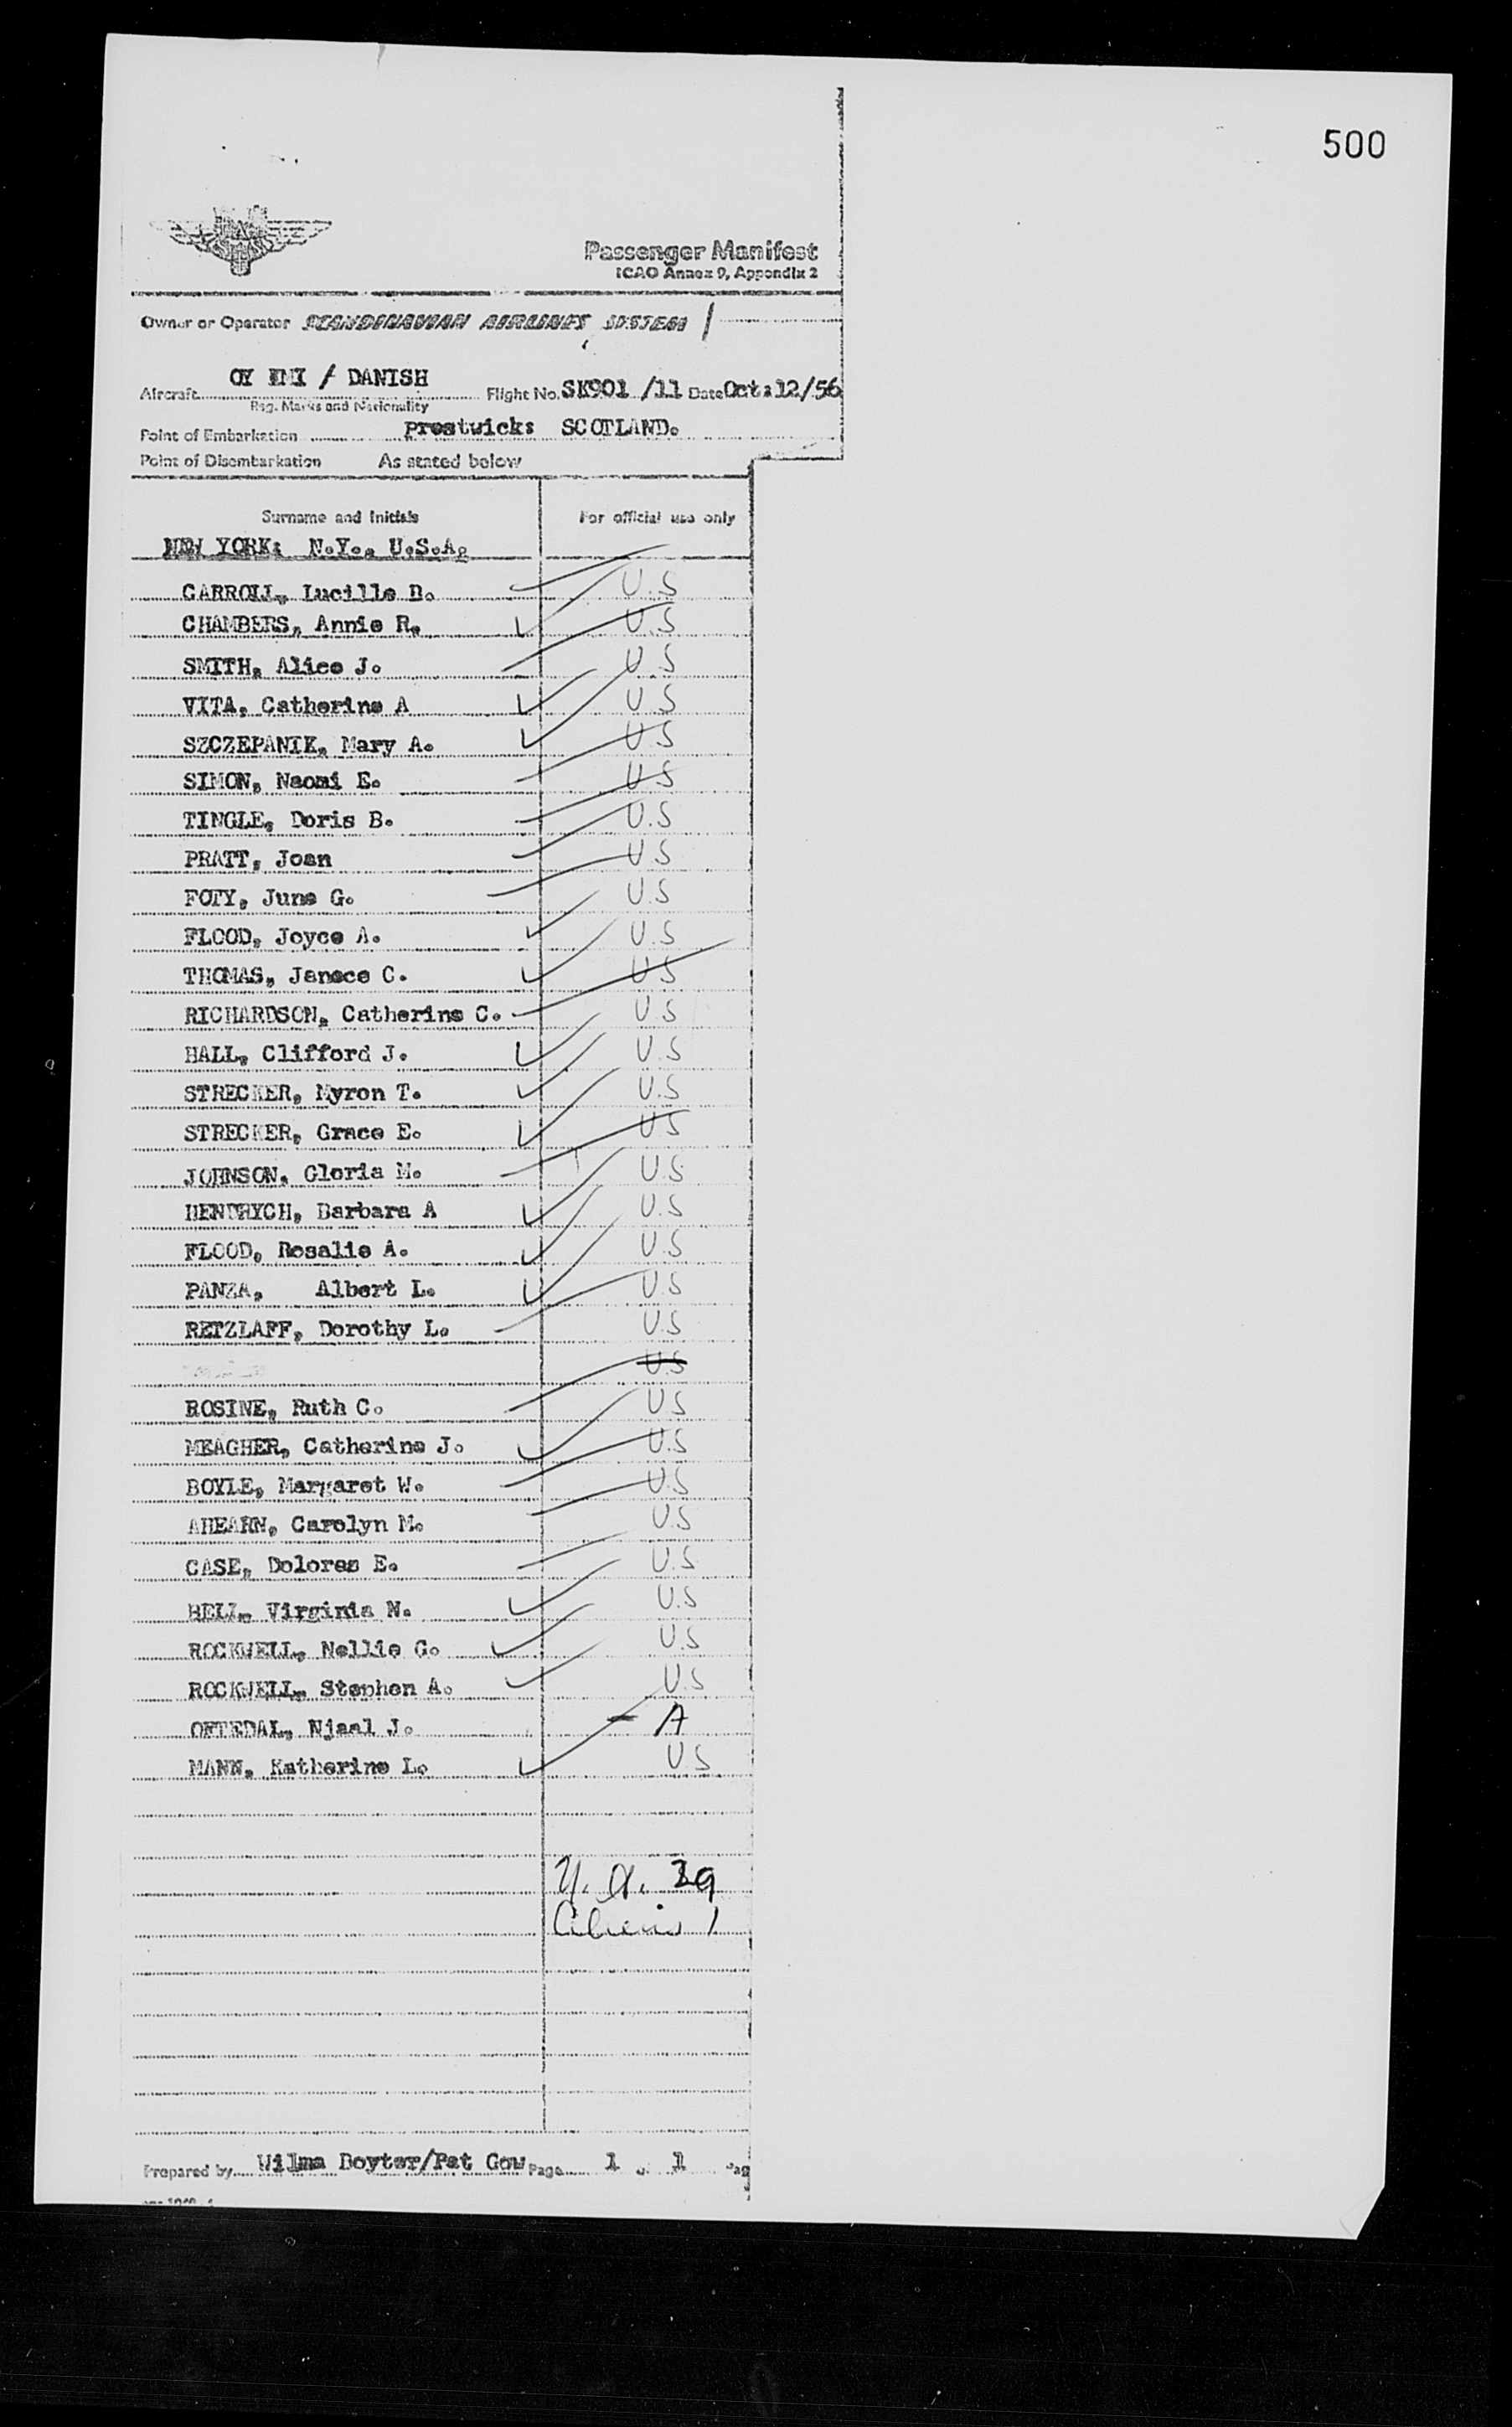 500
Passenger Manifest
ICAO Annex 9, Appendix 2
Owner or Operator SCANDINAVIAN AIRLINES SYSTEM
OY / DANISH
Aircraft Flight No. SK901 /11 Date Oct:12/56
Reg. Marks and Nationality
Point of Embarkation Prestwick: SCOTLAND.
Point of Disembarkation As stated below
Surname and Initials For official use only
NEW YORK: N.Y., U.S.A.
CARROLL, Lucille D. U.S
CHAMBERS, Annie R. U.S
SMITH, Alice J. U.S
VITA, Catherine A U.S
SZCZEPANIK, Mary A. U.S
SIMON, Naomi E. U.S
TINGLE, Doris B. U.S
PRATT, Joan U.S
FOTY, June G. U.S
FLOOD, Joyce A. U.S
THOMAS, Janece C. U.S
RICHARDSON, Catherine C. U.S
HALL, Clifford J. U.S
STRECKER, Myron T. U.S
STRECKER, Grace E. U.S
JOHNSON, Gloria M. U.S
HENDRYCH, Barbara A U.S
FLOOD, Rosalie A. U.S
PANZA, Albert L. U.S
RETZLAFF, Dorothy L. U.S
U.S
ROSINE, Ruth C. U.S
MEAGHER, Catherine J. U.S
BOYLE, Margaret W. U.S
AHEARN, Carolyn M. U.S
CASE, Dolores E. U.S
BELL, Virginia N. U.S
ROCKWELL, Nellie G. U.S
ROCKWELL, Stephen A. U.S
OFTEDAL, Njaal J. - A
MANN, Katherine L. U.S
29
Aliens 1
Prepared by Wilma Boyter/Pat Gow Page 1 1